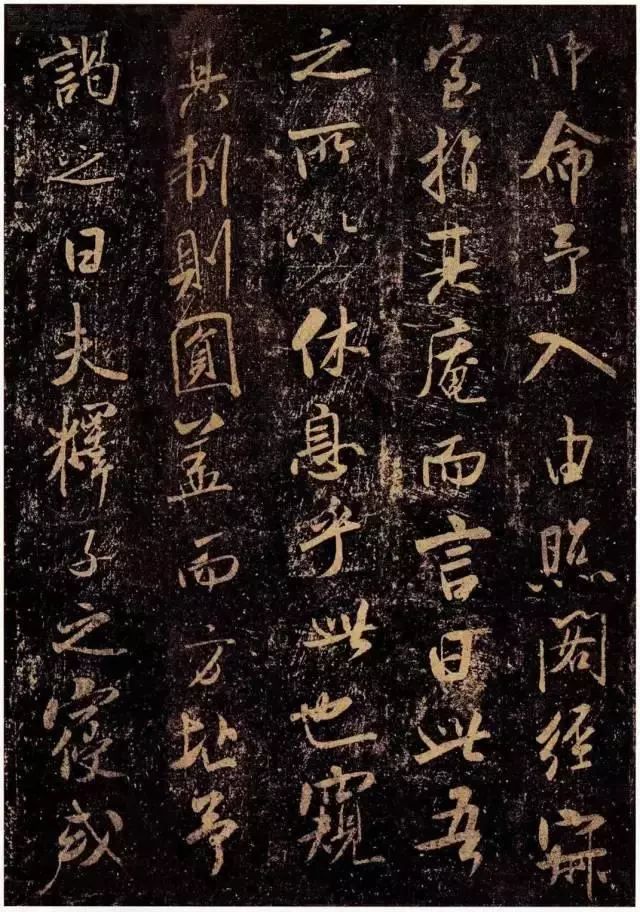 師命予入由照閣經寐
室指其庵而言曰此吾
之所以休息乎此也窺
其制則圓蓋而方址予
謁之曰夫釋子之寢或